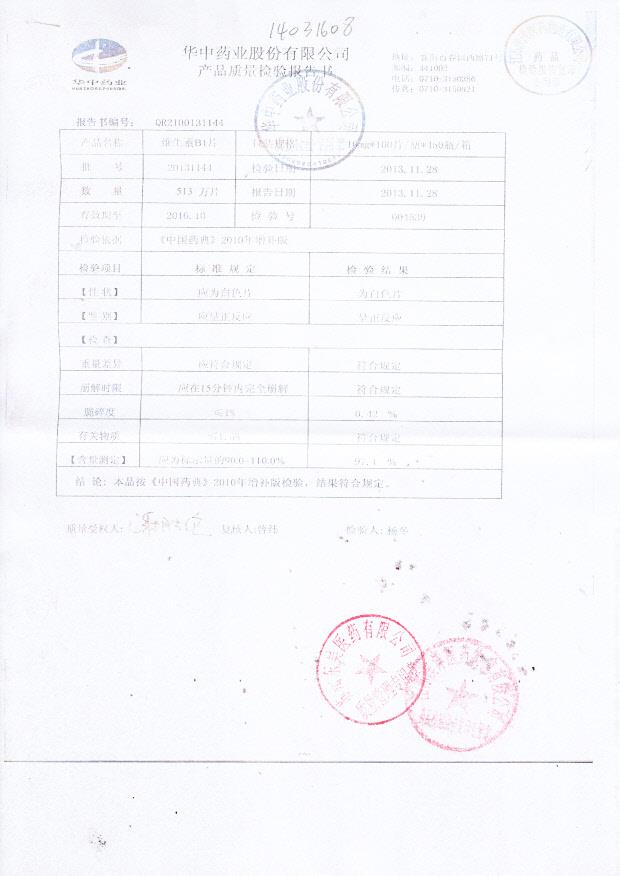 14031608
华中药业股份有限公司
产品质量检验报告书
华中药业
邮编：441002
电话：0710-3150286
传真：0710-3150821
药品
华中药业股份有限公司
报告书编号： QR2100131144
产品名称 维生素B1片 10mg*100片/瓶*160瓶/箱
批 号 20131144 检验日期 2013.11.28
数 量 513 万片 报告日期 2013.11.28
有效期至 2016.10 检 验 号 004539
检验依据 《中国药典》2010年增补版
检验项目 标 准 规 定 检 验 结 果
【性状】 应为白色片 为白色片
【鉴别】 应呈正反应 呈正反应
【检查】
重量差异 应符合规定 符合规定
崩解时限 应在15分钟内完全崩解 符合规定
脆碎度 ≤1% 0.42 %
有关物质 符合规定
【含量测定】 应为标示量的90.0-110.0% 97.1 %
结 论：本品按《中国药典》2010年增补版检验，结果符合规定。
质量受权人： 复核人：曾纬 检验人：杨冬
医药有限公司